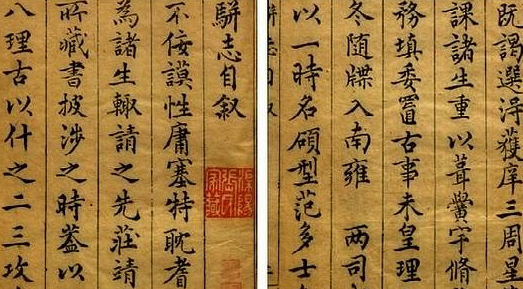 既謁選得獲庠三周星
課諸生重以葺黌宇脩
務填委置古事未皇理
冬隨牒入南雍 兩司
以一時名碩型范多士
駢志自叙
不佞謨性庸蹇特耽耆
為諸生輒請之先莊靖
所藏書披涉之時蓋以
八理古以什之二三攻